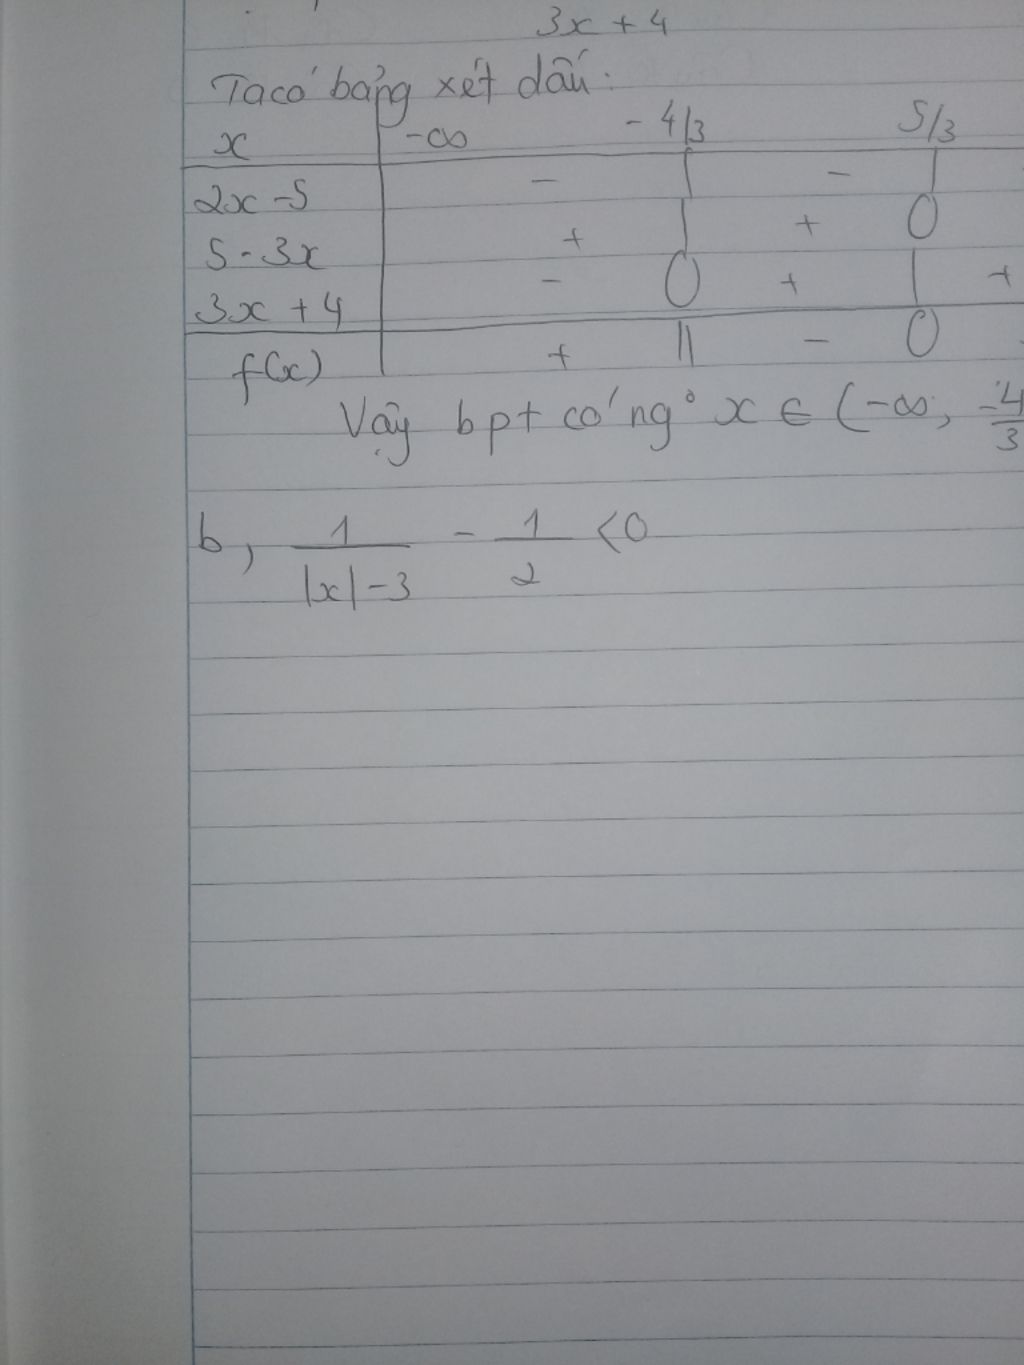 3x + 4
Ta có bảng xét dấu:
x -∞ - 4/3 5/3
2x - 5 - | - |
5 - 3x + | + 0
3x + 4 - 0 + | +
f(x) + || - 0
Vậy bpt có ng° x ∈ (-∞; -4/3
b, 1/(|x| - 3) - 1/2 < 0